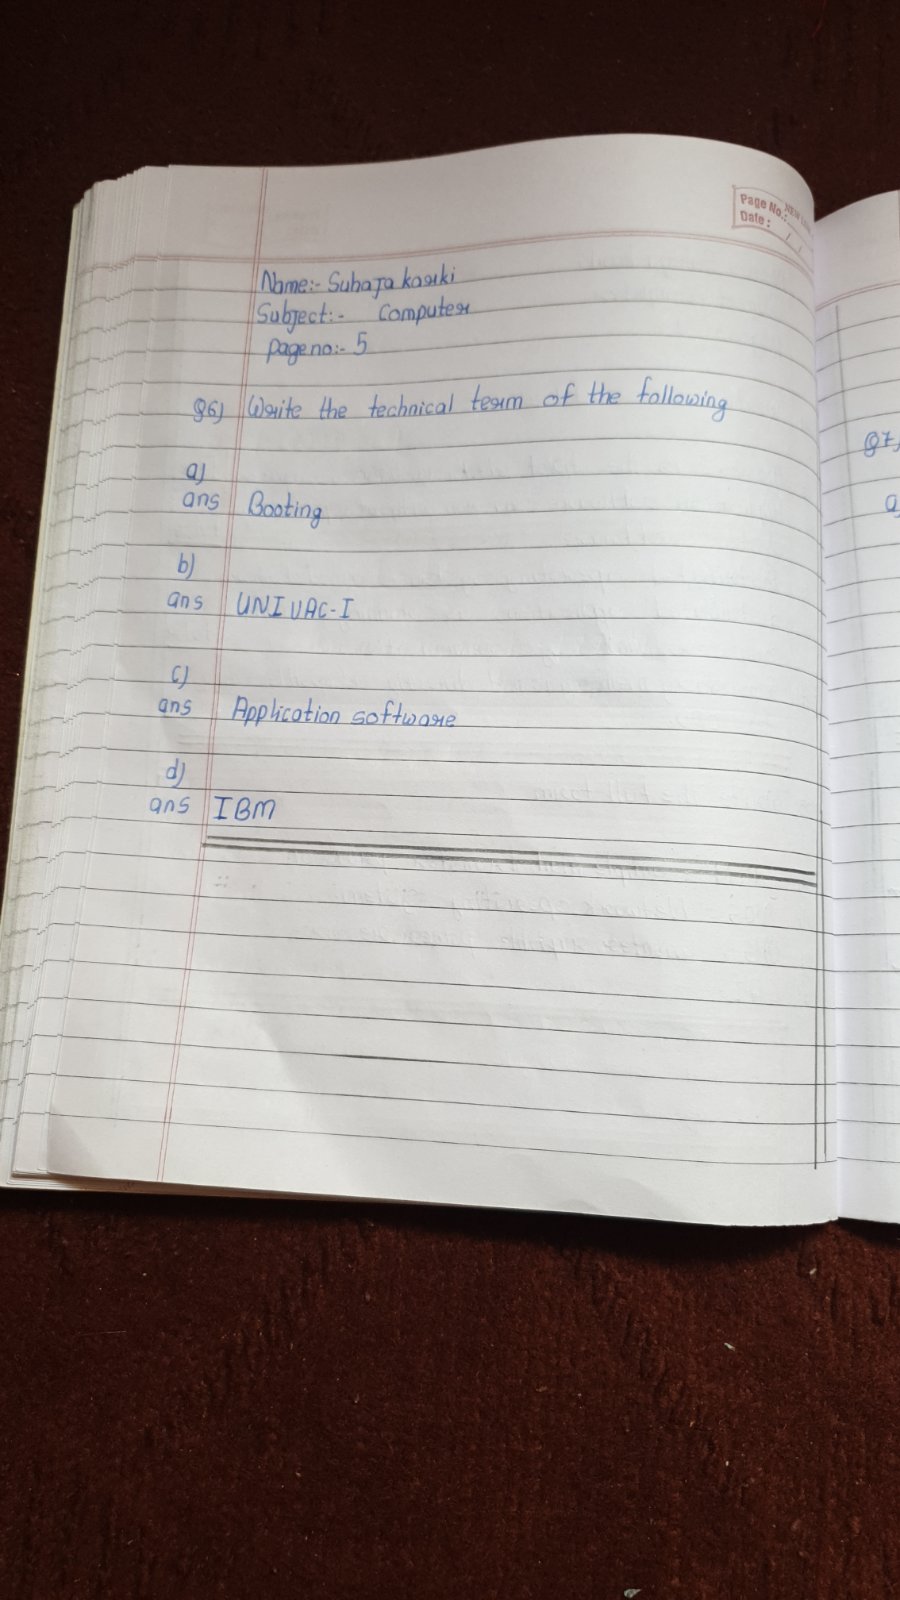 Page No.:
Date: / /
Name:- Suhaja karki
Subject:- Computer
Page no:- 5
Q6) Write the technical term of the following
a)
ans Booting
b)
ans UNIVAC-I
c)
ans Application software
d)
ans IBM
Q7)
a